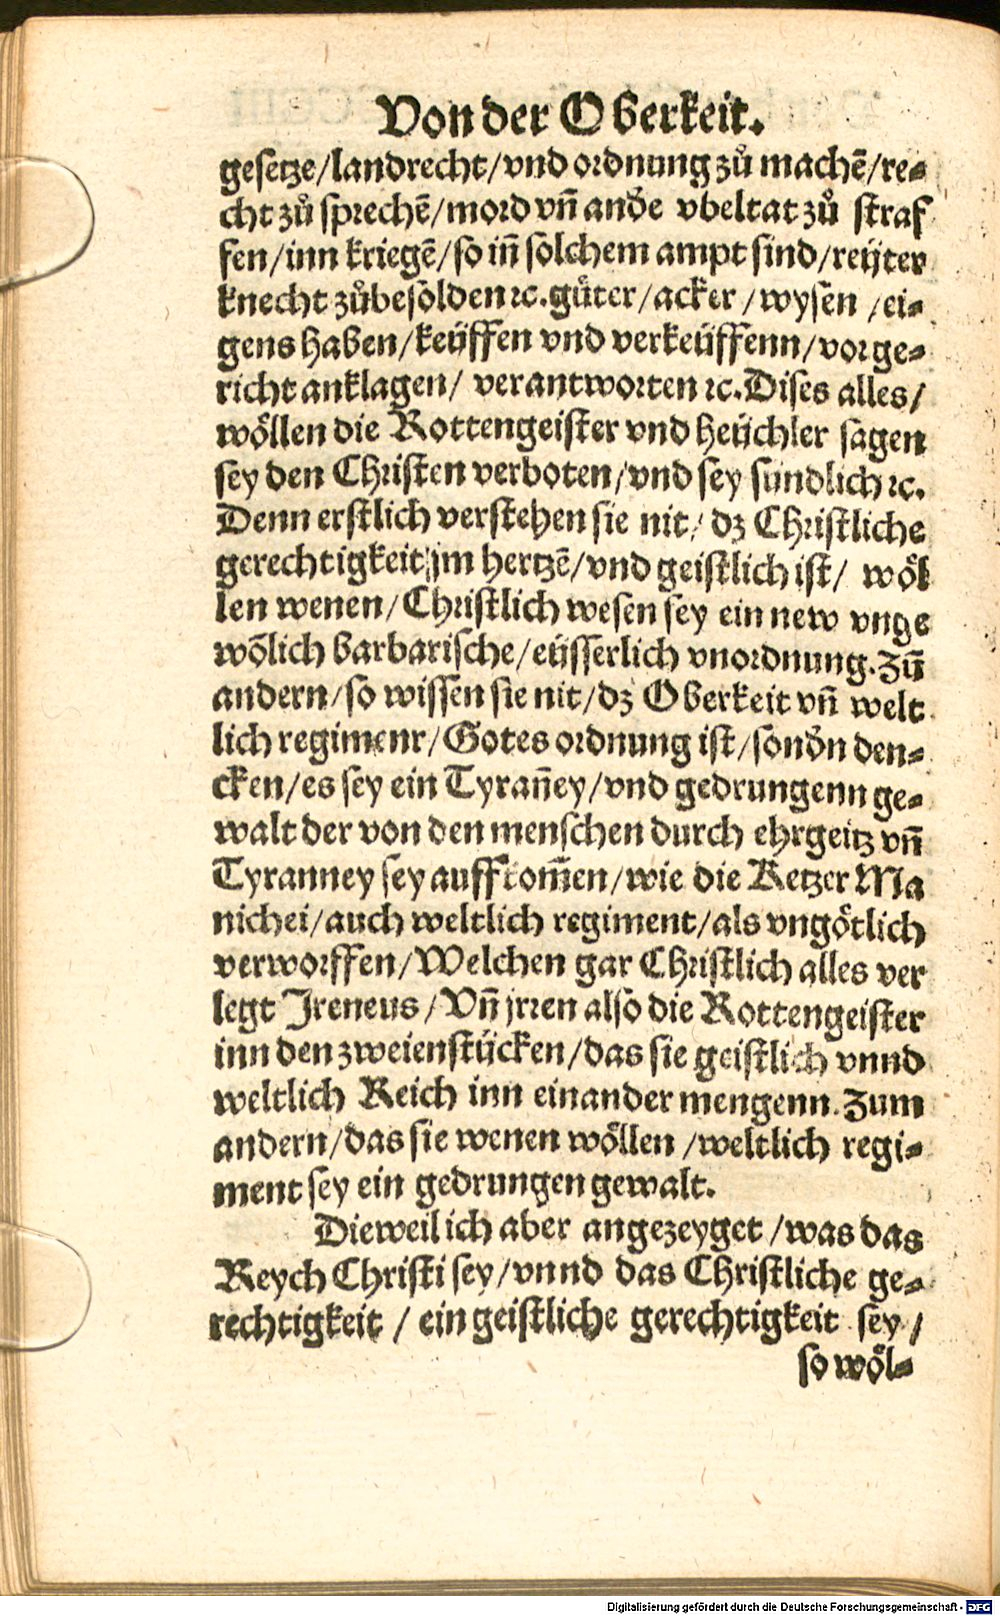 Von der Oberkeit.
gesetze/landrecht/vnd ordnung zů machē/re-
cht zů sprechē/mord vñ ande vbeltat zů straf
fen/inn kriegē/so iñ solchem ampt sind/reÿter
knecht zůbesolden ꝛc. gůter/acker/wysen/ei-
gens haben/keüffen vnd verkeüffenn/vor ge-
richt anklagen/ verantworten ꝛc. Dises alles/
wöllen die Rottengeister vnd heüchler sagen
sey den Christen verboten/vnd sey sündlich ꝛc.
Denn erstlich verstehen sie nit/ dz Christliche
gerechtigkeit jm hertzē/vnd geistlich ist/ wöl
len wenen/Christlich wesen sey ein new vnge
wölich barbarische/eüsserlich vnordnung. Zū
andern/so wissen sie nit/dz Oberkeit vñ welt
lich regimenr/Gotes ordnung ist/sondn den-
cken/es sey ein Tyrañey/vnd gedrungenn ge-
walt der von den menschen durch ehrgeitz vñ
Tyranney sey auffkom̄en/wie die Ketzer Ma
nichei/auch weltlich regiment/als vngötlich
verworffen/Welchen gar Christlich alles ver
legt Jreneus/Vñ jrren also die Rottengeister
inn den zweien stücken/das sie geistlich vnnd
weltlich Reich inn einander mengenn. Zum
andern/das sie wenen wöllen/weltlich regi-
ment sey ein gedrungen gewalt.
Dieweil ich aber angezeyget/was das
Reych Christi sey/vnnd das Christliche ge-
rechtigkeit/ ein geistliche gerechtigkeit sey/
so wöl-
Digitalisierung gefördert durch die Deutsche Forschungsgemeinschaft - DFG